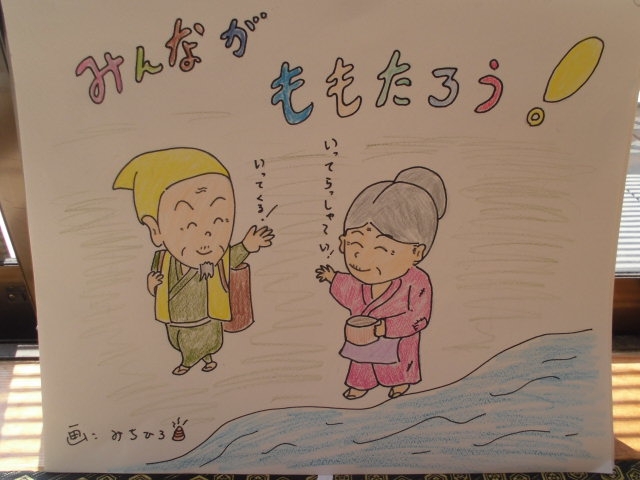 みんなが
ももたろう!
いってくる!
いってらっしゃい!
画:みちひろ